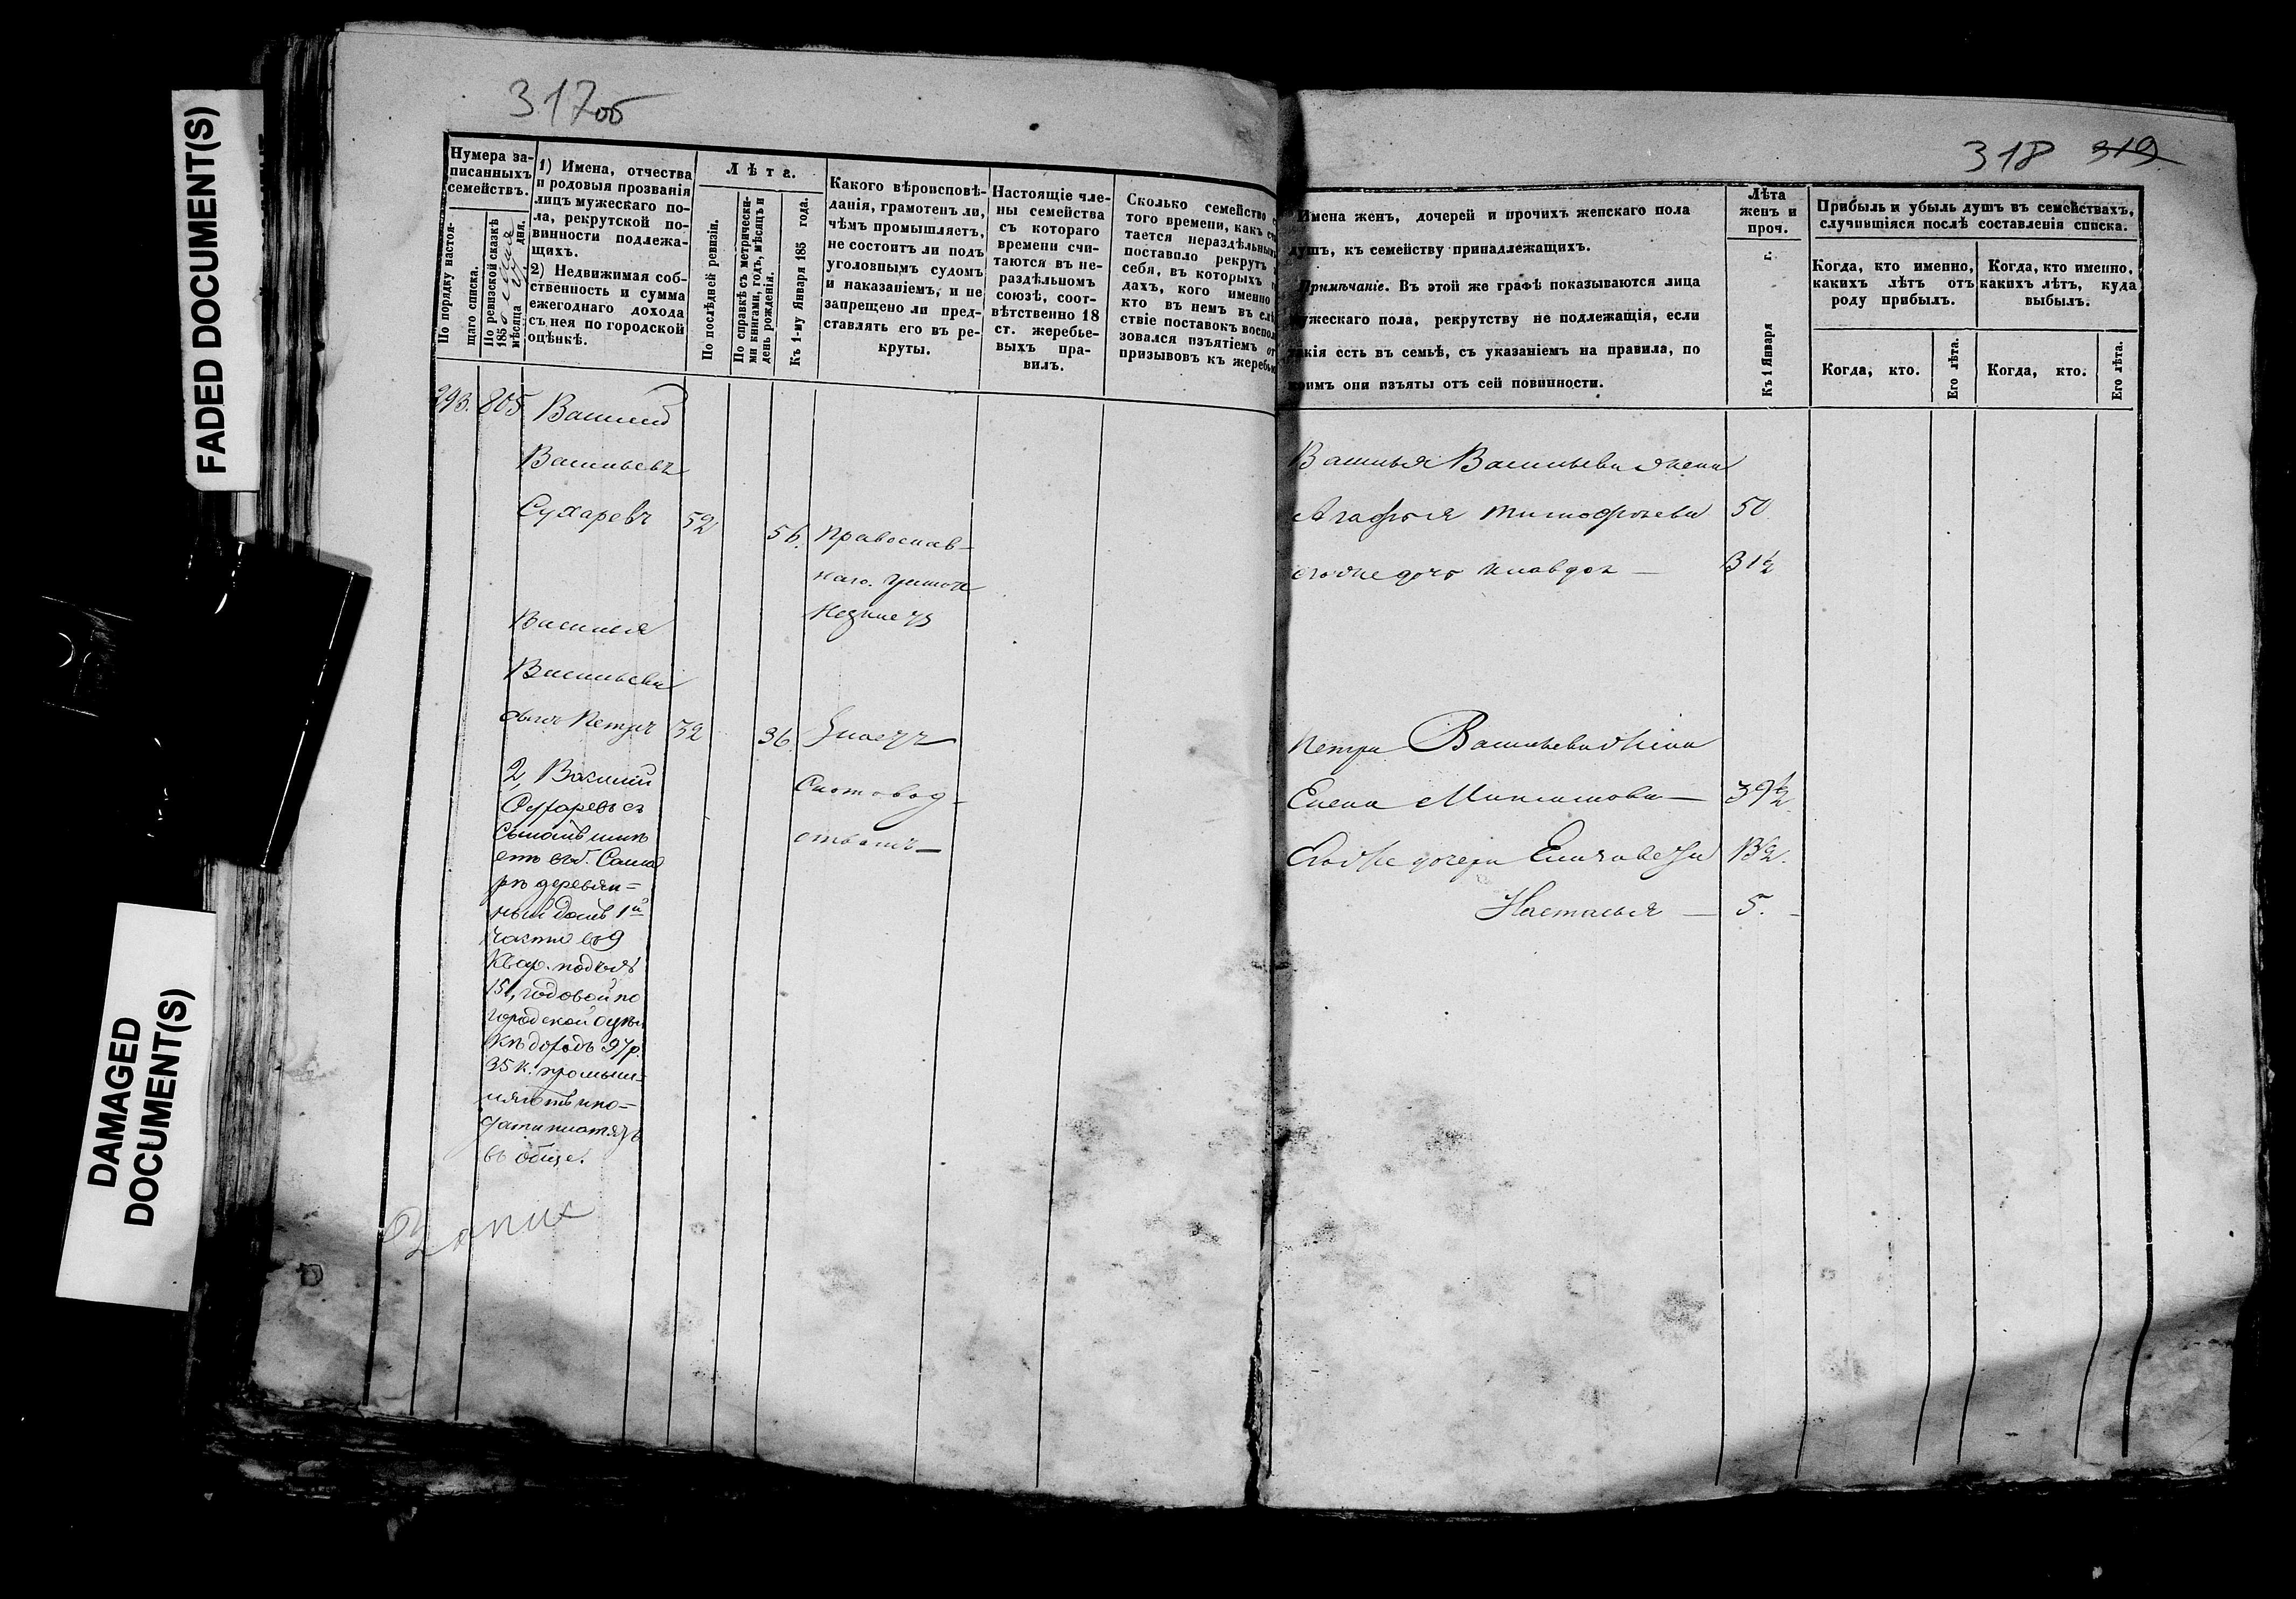 FADED DOCUMENT(S)
DAMAGED
DOCUMENT(S)
317об
Нумера за-
писанныхъ
семействъ.
По порядку настоя-
щаго списка.
По ревизской сказкѣ
185
мѣсяца дня.
1) Имена, отчества
и родовыя прозванія
лицъ мужескаго по-
ла, рекрутской по-
винности подлежа-
щихъ.
2) Недвижимая соб-
ственность и сумма
ежегоднаго дохода
съ нея по городской
оцѣнкѣ.
Лѣта.
По послѣдней ревизіи.
По справкѣ съ метрически-
ми книгами, годъ, мѣсяцъ и
день рожденія.
Къ 1-му Января 185 года.
Какого вѣроисповѣ-
данія, грамотенъ ли,
чѣмъ промышляетъ,
не состоитъ ли подъ
уголовнымъ судомъ
и наказаніемъ, и не
запрещено ли пред-
ставлять его въ ре-
круты.
Настоящіе чле-
ны семейства
съ котораго
времени счи-
таются въ не-
раздѣльномъ
союзѣ, соот-
вѣтственно 18
ст. жеребье-
выхъ пра-
вилъ.
Сколько семейство
того времени, какъ
тается нераздѣльнымъ
поставило рекрутъ
себя, въ которыхъ
дахъ, кого именно
кто въ немъ въ слѣд
ствіе поставокъ воспол
зовался изъятіемъ от
призывовъ къ жеребью
293. 805 Василий
Васильевъ
Сухаревъ 52 56. православ-
наго. грамоте
не знаетъ
Василья
Васильева
сынъ Петръ 32 36. Знаетъ
Скотовод-
ствомъ
2, Василий
Сухаревъ съ
сыномъ имѣ
етъ въ г. Сама
рѣ деревян-
ный домъ 1й
части въ 9
Квар. подъ №
151, годовой по
городской оцѣн
кѣ доходъ 97 р.
35 к. промыш-
ляютъ и по-
дати платятъ
въ обще.
318 319
Имена женъ, дочерей и прочихъ женскаго пола
душъ, къ семейству принадлежащихъ.
Примѣчаніе. Въ этой же графѣ показываются лица
мужескаго пола, рекрутству не подлежащія, если
такія есть въ семьѣ, съ указаніемъ на правила, по
коимъ они изъяты отъ сей повинности.
Лѣта
женъ и
проч.
Къ 1 Января г.
Прибыль и убыль душъ въ семействахъ,
случившіяся послѣ составленія списка.
Когда, кто именно,
какихъ лѣтъ отъ
роду прибылъ.
Когда, кто именно,
какихъ лѣтъ, куда
выбылъ.
Когда, кто.
Его лѣта.
Когда, кто.
Его лѣта.
Василья Васильева жена
Агафья Тимофѣева 50
его же дочь
Петра Васильева жена
Елена
Его же дочери Елизавета
Настасья 5.